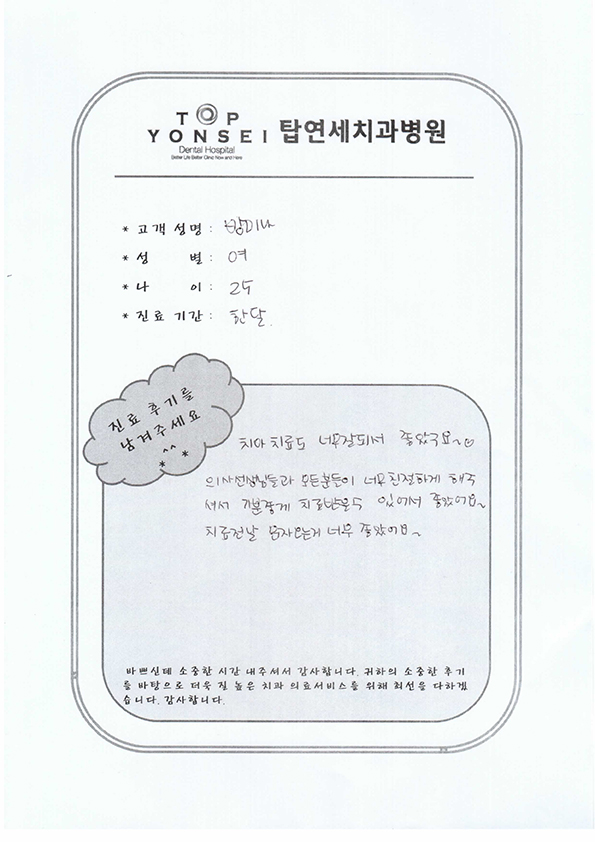 TOP
YONSEI 탑연세치과병원
Dental Hospital
Better Life Better Clinic Now and Here
* 고객 성명 : 박미나
* 성 별 : 여
* 나 이 : 25
* 진료 기간 : 한달
진료 후기를
남겨주세요
^^
* *
치아 치료도 너무잘되서 좋았구요~♡
의사선생님들과 모든분들이 너무친절하게 해주
셔서 기분좋게 치료받을수 있어서 좋았어요~
치료전날 문자오는거 너무 좋았어요~
바쁘신데 소중한 시간 내주셔서 감사합니다. 귀하의 소중한 후기
를 바탕으로 더욱 질 높은 치과 의료서비스를 위해 최선을 다하겠
습니다. 감사합니다.